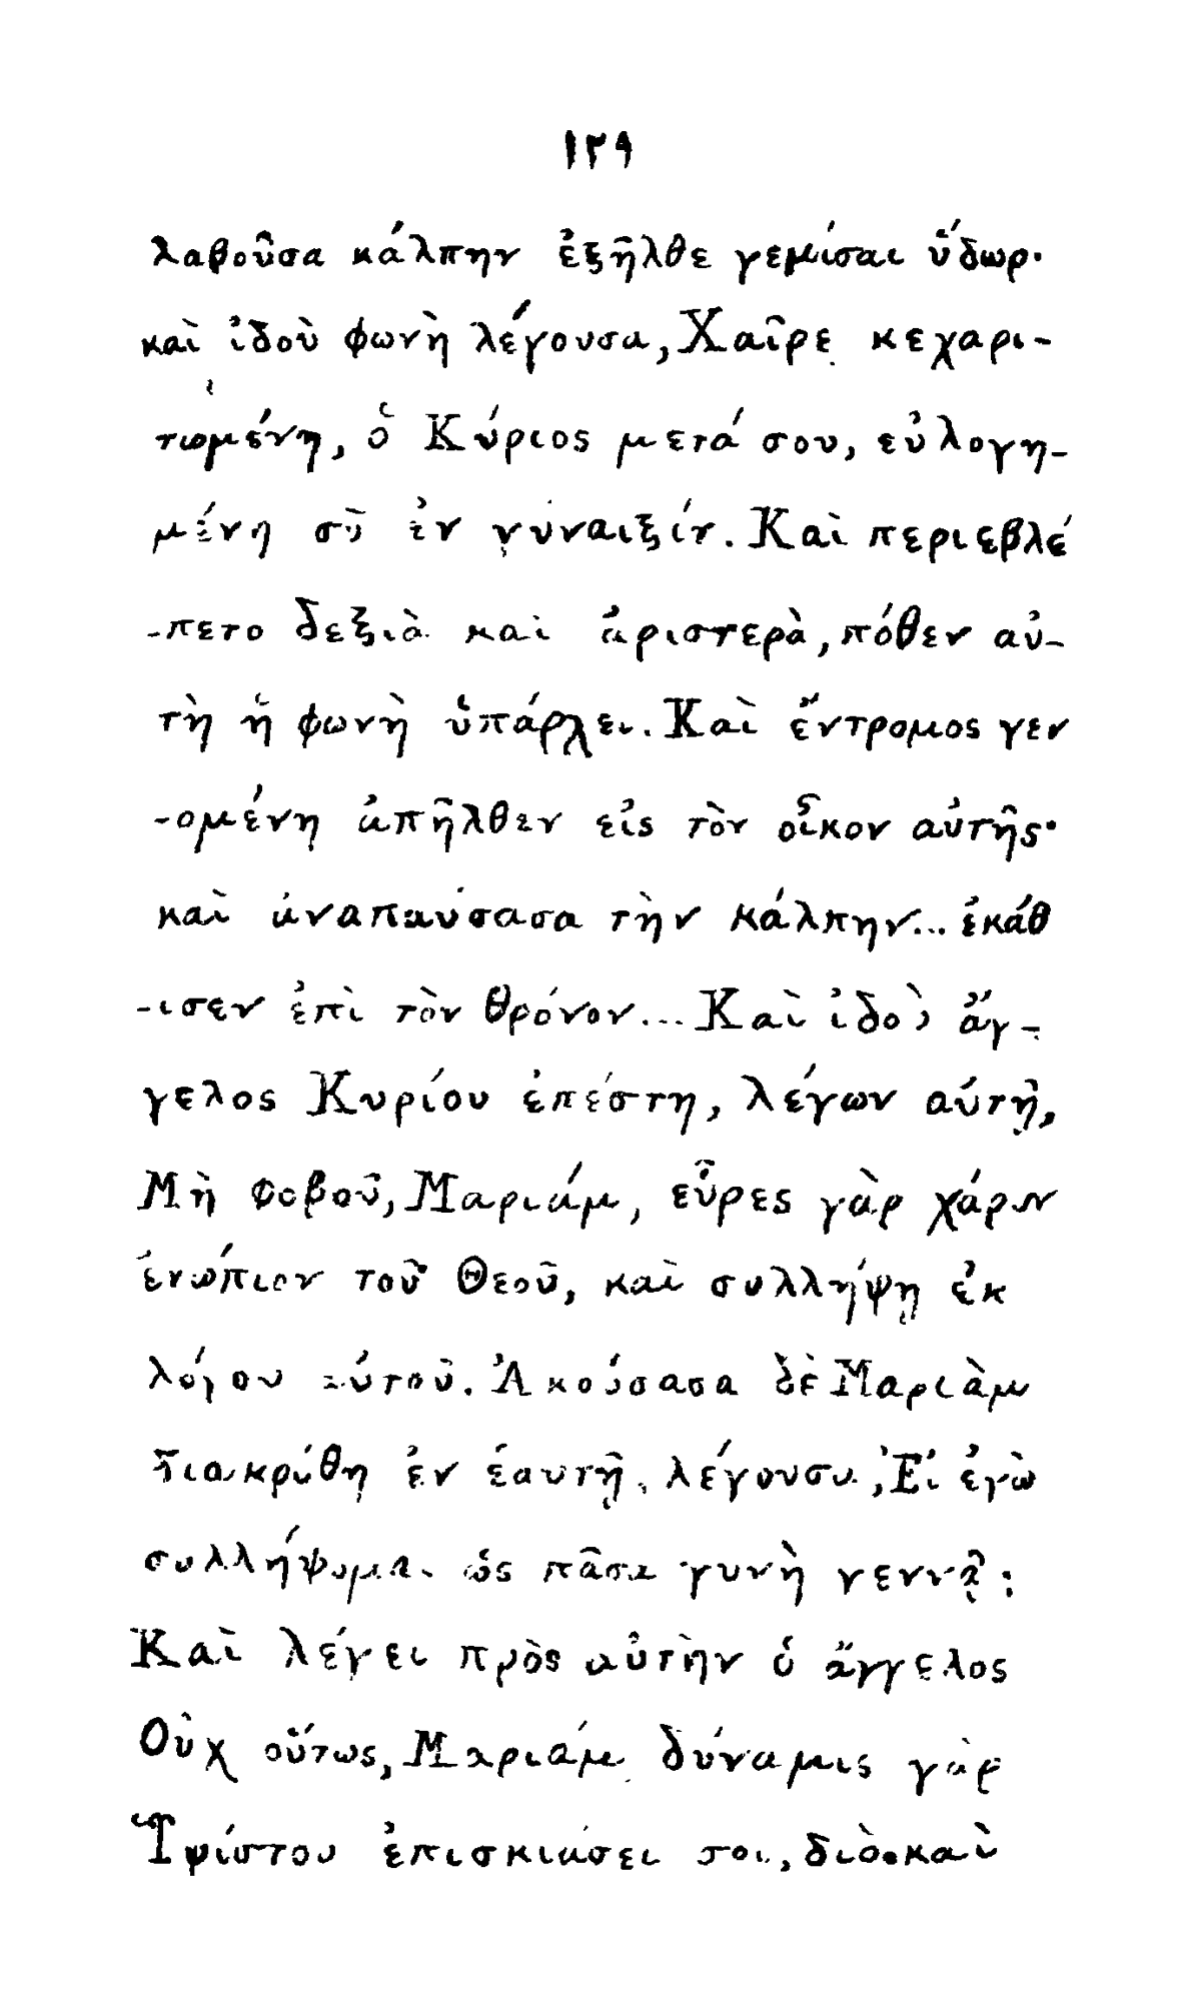 ١٢٩
λαβοῦσα κάλπην ἐξῆλθε γεμίσαι ὕδωρ·
καὶ ἰδοὺ φωνὴ λέγουσα, Χαῖρε κεχαρι-
τωμένη, ὁ Κύριος μετά σου, εὐλογη-
μένη σὺ ἐν γυναιξίν. Καὶ περιεβλέ
-πετο δεξιὰ καὶ ἀριστερὰ, πόθεν αὐ-
τὴ ἡ φωνὴ ὑπάρχει. Καὶ ἔντρομος γεν
-ομένη ἀπῆλθεν εἰς τὸν οἶκον αὐτῆς·
καὶ ἀναπαύσασα τὴν κάλπην... ἐκάθ
-ισεν ἐπὶ τὸν θρόνον... Καὶ ἰδοὺ ἄγ-
γελος Κυρίου ἐπέστη, λέγων αὐτῇ,
Μὴ φοβοῦ, Μαριάμ, εὗρες γὰρ χάριν
ἐνώπιον τοῦ Θεοῦ, καὶ συλλήψῃ ἐκ
λόγου αὐτοῦ. Ἀκούσασα δὲ Μαριὰμ
διακρίθη ἐν ἑαυτῇ, λέγουσα, Εἰ ἐγὼ
συλλήψομαι ὡς πᾶσα γυνὴ γεννᾷ;
Καὶ λέγει πρὸς αὐτὴν ὁ ἄγγελος
Οὐχ οὕτως, Μαριάμ δύναμις γὰρ
Ὑψίστου ἐπισκιάσει σοι, διὸ καὶ